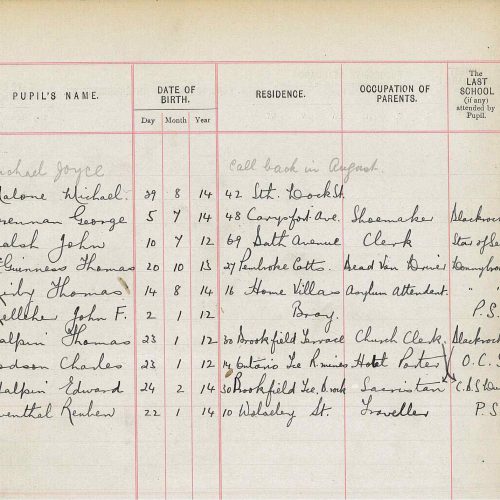 PUPIL'S NAME. DATE OF BIRTH. RESIDENCE. OCCUPATION OF PARENTS. The LAST SCHOOL (if any) attended by Pupil.
Day Month Year
ichael Joyce Call back in August.
alone Michael. 29 8 14 42 Sth. Dock St.
rennan George 5 7 14 48 Carysfort Ave. Shoemaker Blackroc
alsh John 10 7 12 69 Bath Avenue Clerk Star of Se
Guinness Thomas 20 10 13 27 Pembroke Cotts. Bread Van Driver Donnybro
Thomas 14 8 14 16 Home Villas Asylum Attendent. " "
elleher John F. 2 1 12 Bray. P.S.
alpin Thomas 23 1 12 30 Brookfield Terrace Church Clerk. Blackroc
odson Charles 23 1 12 14 Ontario Tce Rmines Hotel Porter O.C.S
alpin Edward 24 2 14 30 Brookfield Tce. B.rock Sacristan C.B.S
venthal Reuben 22 1 14 10 Wolseley St. Traveller P.S